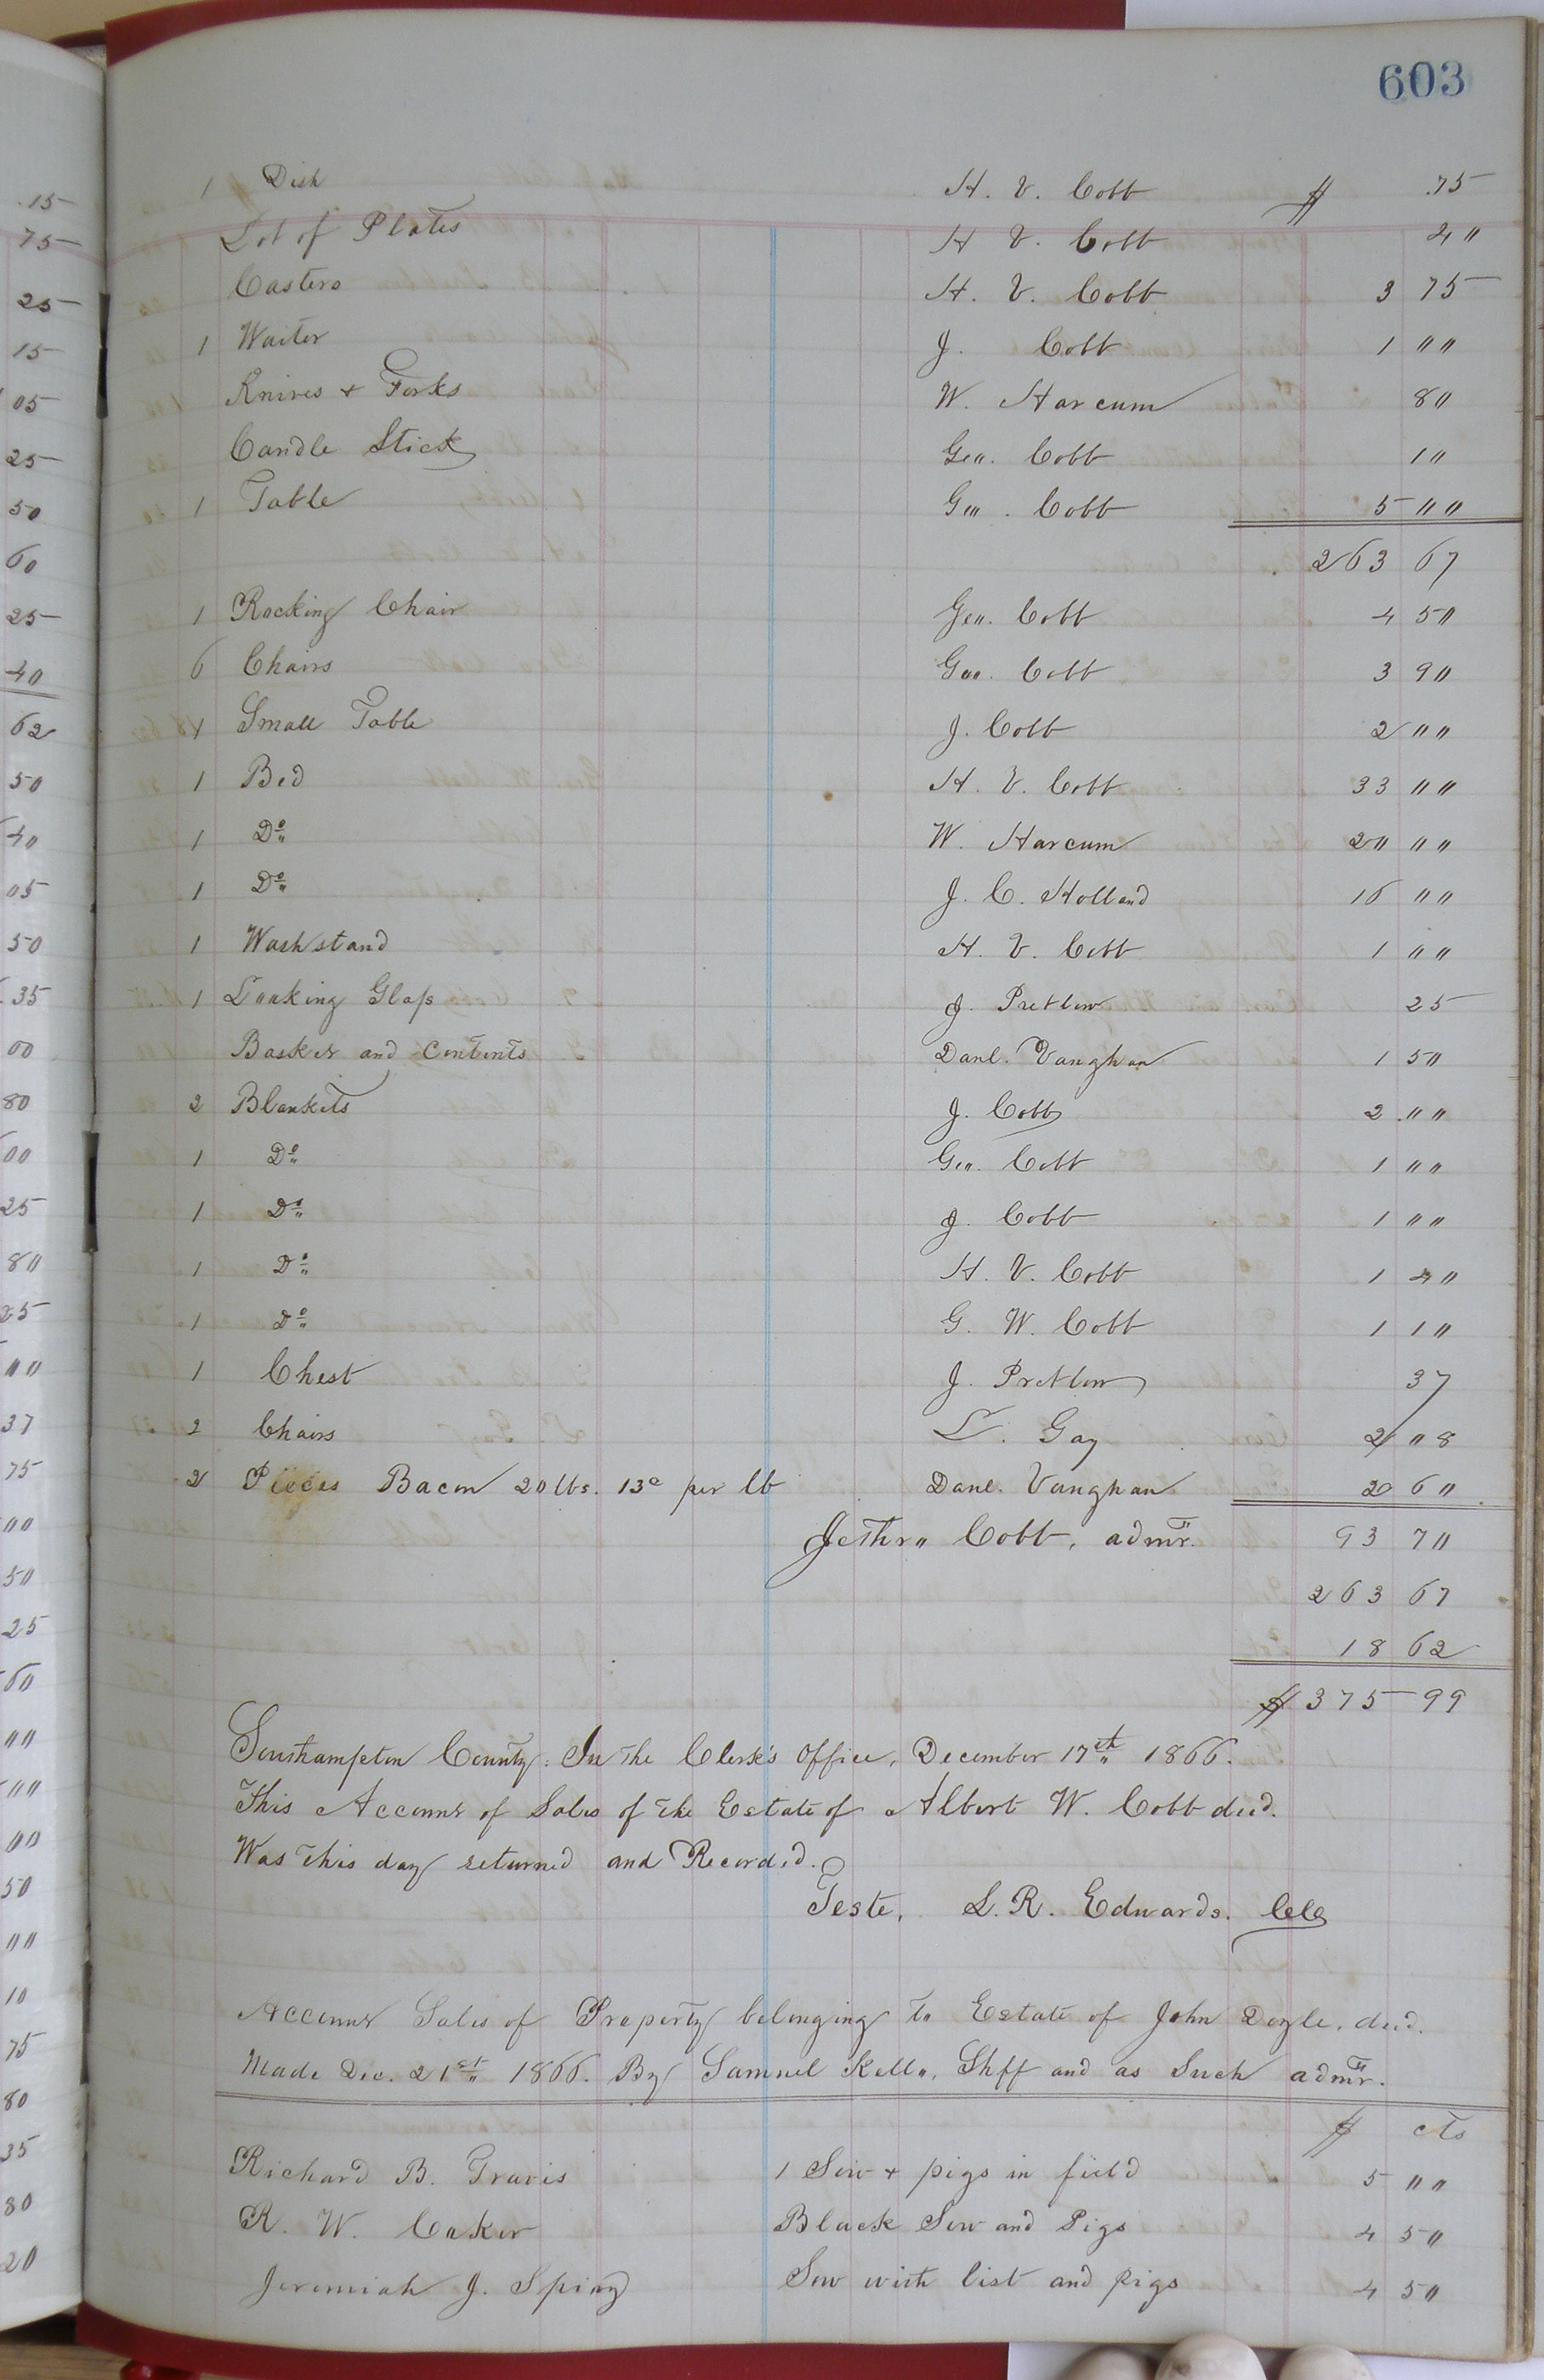 603
1 Dish H. V. Cobb $ .75
Lot of Plates H V. Cobb 40
Casters H. V. Cobb 3 75
1 Waiter J. Cobb 1 00
Knives + Forks W. Harcum 80
Candle Stick Geo. Cobb 10
1 Table Geo. Cobb 5 00
263 67
1 Rocking Chair Geo. Cobb 4 50
6 Chairs Geo. Cobb 3 90
1 Small Table J. Cobb 2 00
1 Bed H. V. Cobb 33 00
1 Do W. Harcum 20 00
1 Do J. C. Holland 16 00
1 Washstand H. V. Cobb 1 00
1 Looking Glass J. Pretlow 25
Basket and Contents Danl. Vaughan 1 50
2 Blankets J. Cobb 2 00
1 Do Geo. Cobb 1 00
1 Do J. Cobb 1 00
1 Do H. V. Cobb 1 40
1 Do G. W. Cobb 1 10
1 Chest J. Pretlow 37
2 Chairs L. Gay 2 08
2 Pieces Bacon 20 lbs. 13c per lb Danl. Vaughan 2 60
Jethro Cobb, admr. 93 70
263 67
18 62
$ 375 99
Southampton County: In the Clerk's Office, December 17th 1866.
This Account of Sales of the Estate of Albert W. Cobb decd.
Was this day returned and Recorded.
Teste, L. R. Edwards. Clk
Account Sales of Property belonging to Estate of John Doyle, decd.
Made Dec. 21st 1866. By Samuel Kello, Shff and as Such admr.
$ cts
Richard B. Travis 1 Sow + pigs in field 5 00
R. W. Caker Black Sow and Pigs 4 50
Jeremiah J. Spivy Sow with list and pigs 4 50
15
75
25
15
05
25
50
60
25
40
62
50
40
05
50
35
00
80
00
25
80
25
00
37
75
00
50
25
60
00
00
00
50
00
10
75
80
35
80
20